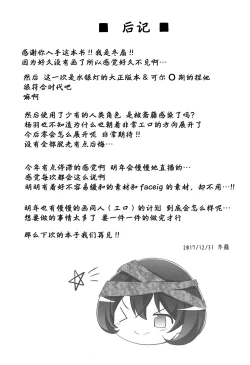 ■ 后记 ■
感谢你入手这本书!!我是冬扇!!
因为好久没有画了所以感觉好久不见啊…
然后 这一次是水银灯的大正版本&可尔O斯的捏他
很符合时代吧
嘛啊
然后使用了少有的人类角色 是被斋藤感染了吗?
杨羽也不知道为什么也朝着非常工口的方向展开了
今后零会怎么展开呢 非常期待!!
没有全部脱光有点后悔…
今年有点停滞的感觉啊 明年会慢慢地直播的…
感觉每次都会这么说啊
明明有着好不容易缓和的素材和faceig的素材,却不用…!!
明年也有慢慢的画同人(工口)的计划 到底会怎么样呢…
想要做的事情太多了 要一件一件的做完才行
那么下次的本子我们再见!!
2017/12/31 冬扇